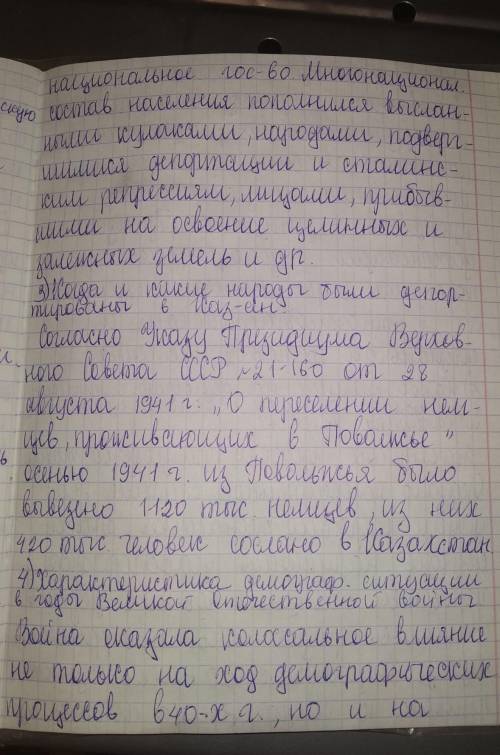 национальное гос-во. Многонационал.
состав населения пополнился выслан-
ными кулаками, народами, подверг-
шимися депортации и сталинс-
ким репрессиям, лицами, прибыв-
шими на освоение целинных и
залежных земель и др.
3) Когда и какие народы были депор-
тированы в Каз-ан
Согласно Указу Президиума Верхов-
ного Совета СССР №21-160 от 28
августа 1941 г. „О переселении нем-
цев, проживающих в Поволжье"
осенью 1941 г. из Поволжья было
вывезено 1120 тыс. немцев, из них
420 тыс. человек сослано в Казахстан
4) Характеристика демограф. ситуации
в годы Великой Отечественной войны
Война оказала колоссальное влияние
не только на ход демографических
процессов в 40-х г., но и на